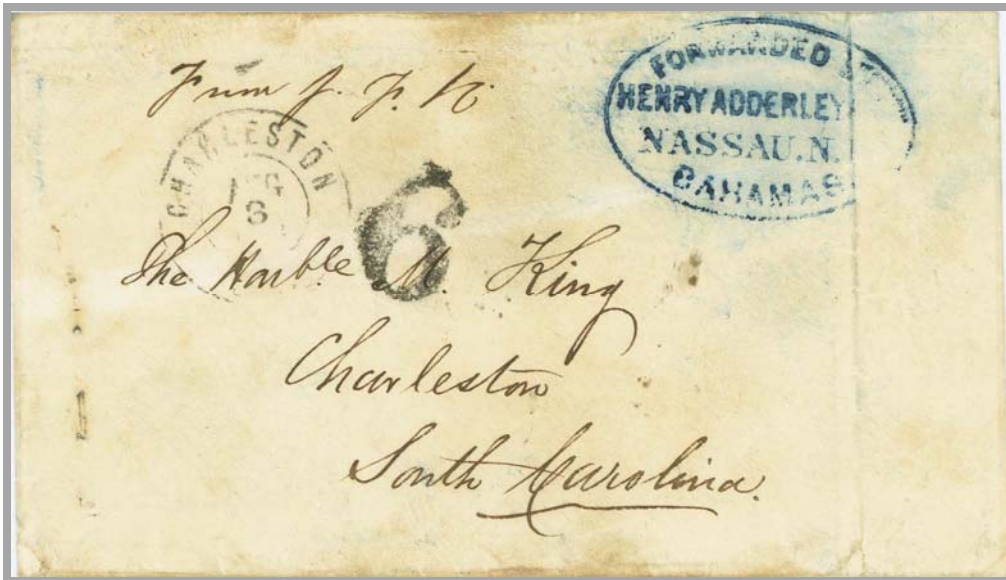 From J. F. K.
FORWARDED
HENRY ADDERLEY
NASSAU. N.
BAHAMAS
CHARLESTON
AUG
6
6
The Honble M. King
Charleston
South Carolina.